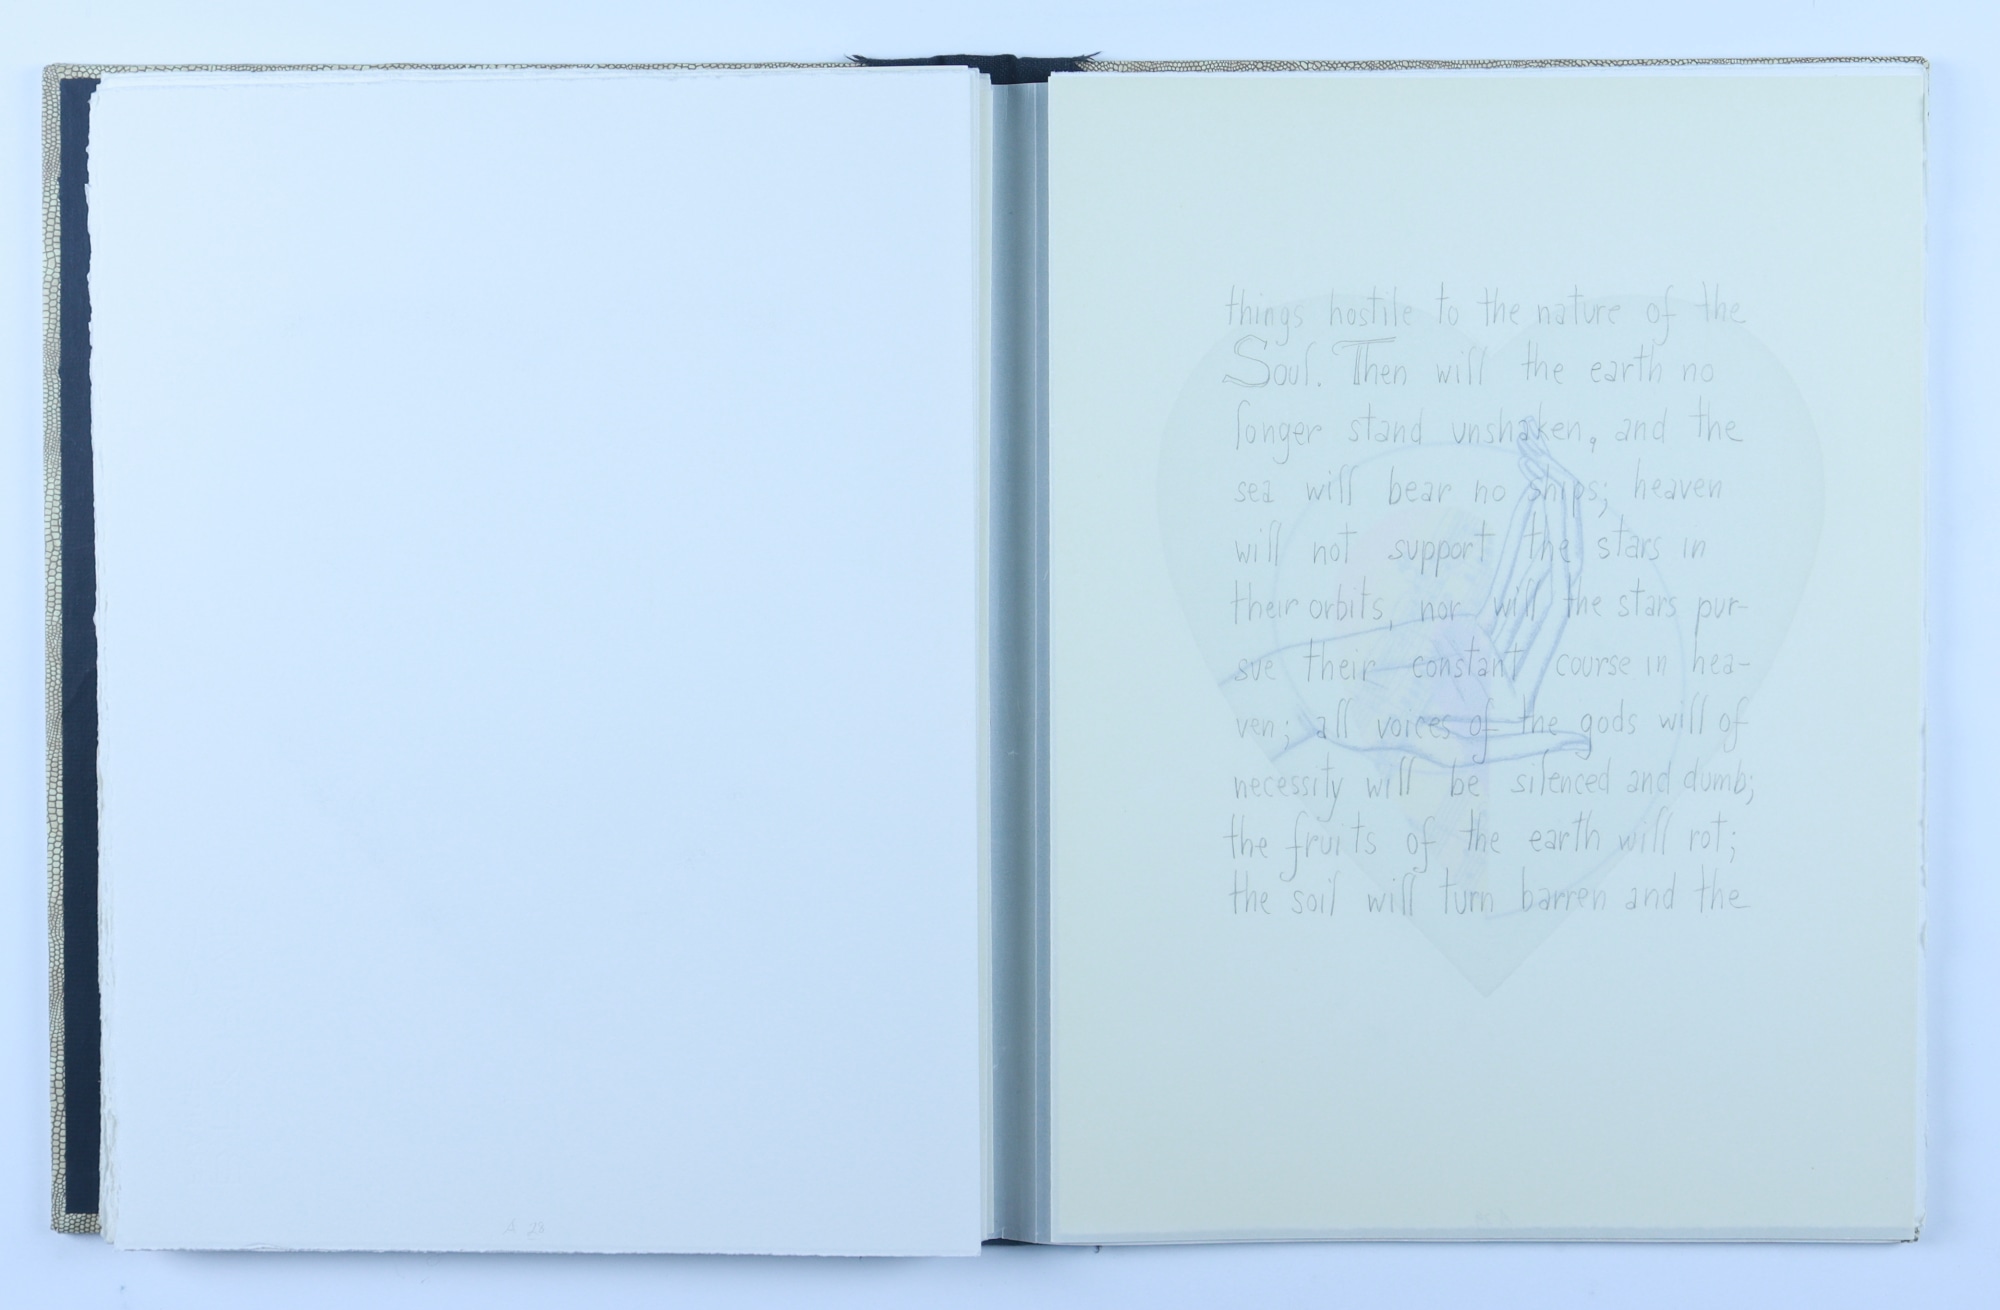 things hostile to the nature of the
Soul. Then will the earth no
longer stand unshaken, and the
sea will bear no ships; heaven
will not support the stars in
their orbits, nor will the stars pur-
sue their constant course in hea-
ven; all voices of the gods will of
necessity will be silenced and dumb;
the fruits of the earth will rot;
the soil will turn barren and the
A 28